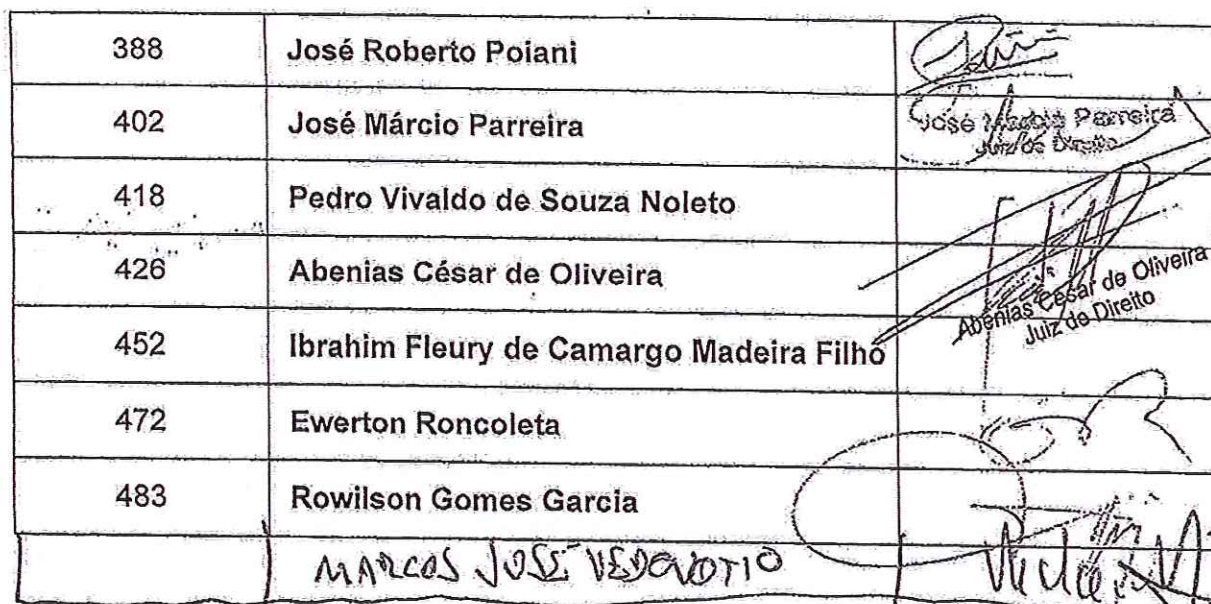 388 José Roberto Poiani
402 José Márcio Parreira José Márcio Parreira
Juiz de Direito
418 Pedro Vivaldo de Souza Noleto
426 Abenias César de Oliveira Abenias César de Oliveira
Juiz de Direito
452 Ibrahim Fleury de Camargo Madeira Filho
472 Ewerton Roncoleta
483 Rowilson Gomes Garcia
MARCOS JOSÉ